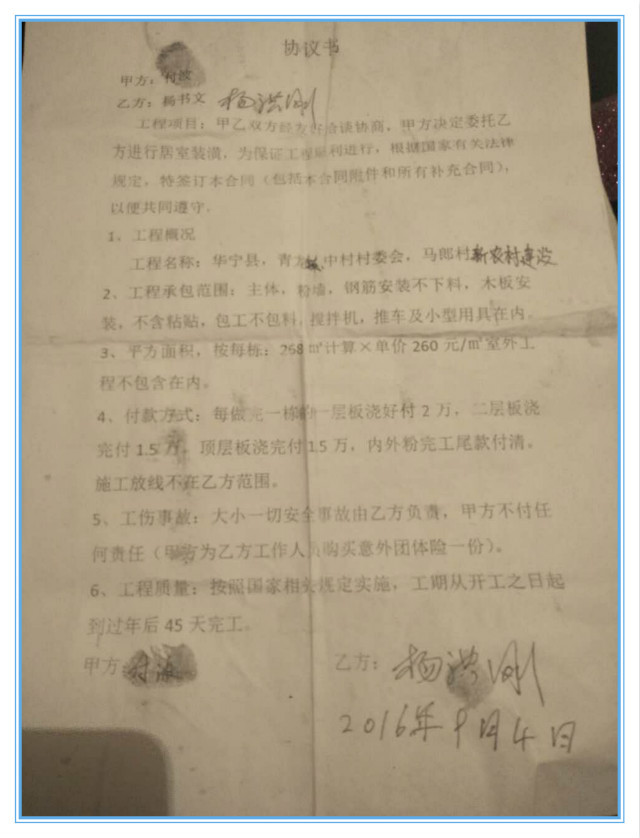 协议书
甲方：付波
乙方：杨书文 杨洪刚
工程项目：甲乙双方经友好洽谈协商，甲方决定委托乙
方进行居室装潢，为保证工程顺利进行，根据国家有关法律
规定，特签订本合同（包括本合同附件和所有补充合同），
以便共同遵守。
1、工程概况
工程名称：华宁县，青龙镇中村村委会，马郎村新农村建设
2、工程承包范围：主体，粉墙，钢筋安装不下料，木板安
装，不含粘贴，包工不包料，搅拌机，推车及小型用具在内。
3、平方面积，按每栋：268㎡计算×单价 260 元/㎡室外工
程不包含在内。
4、付款方式：每做完一栋的一层板浇好付 2 万，二层板浇
完付 1.5 万，顶层板浇完付 1.5 万，内外粉完工尾款付清。
施工放线不在乙方范围。
5、工伤事故：大小一切安全事故由乙方负责，甲方不付任
何责任（甲方为乙方工作人员购买意外团体险一份）。
6、工程质量：按照国家相关规定实施，工期从开工之日起
到过年后 45 天完工。
甲方：付波 乙方：杨洪刚
2016年9月4日